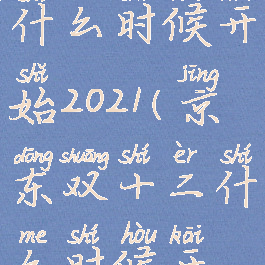 什么时候开
shǐ jīng
始2021(京
dōng shuāng shí èr shí
东双十二什
me shí hòu kāi
么时候开